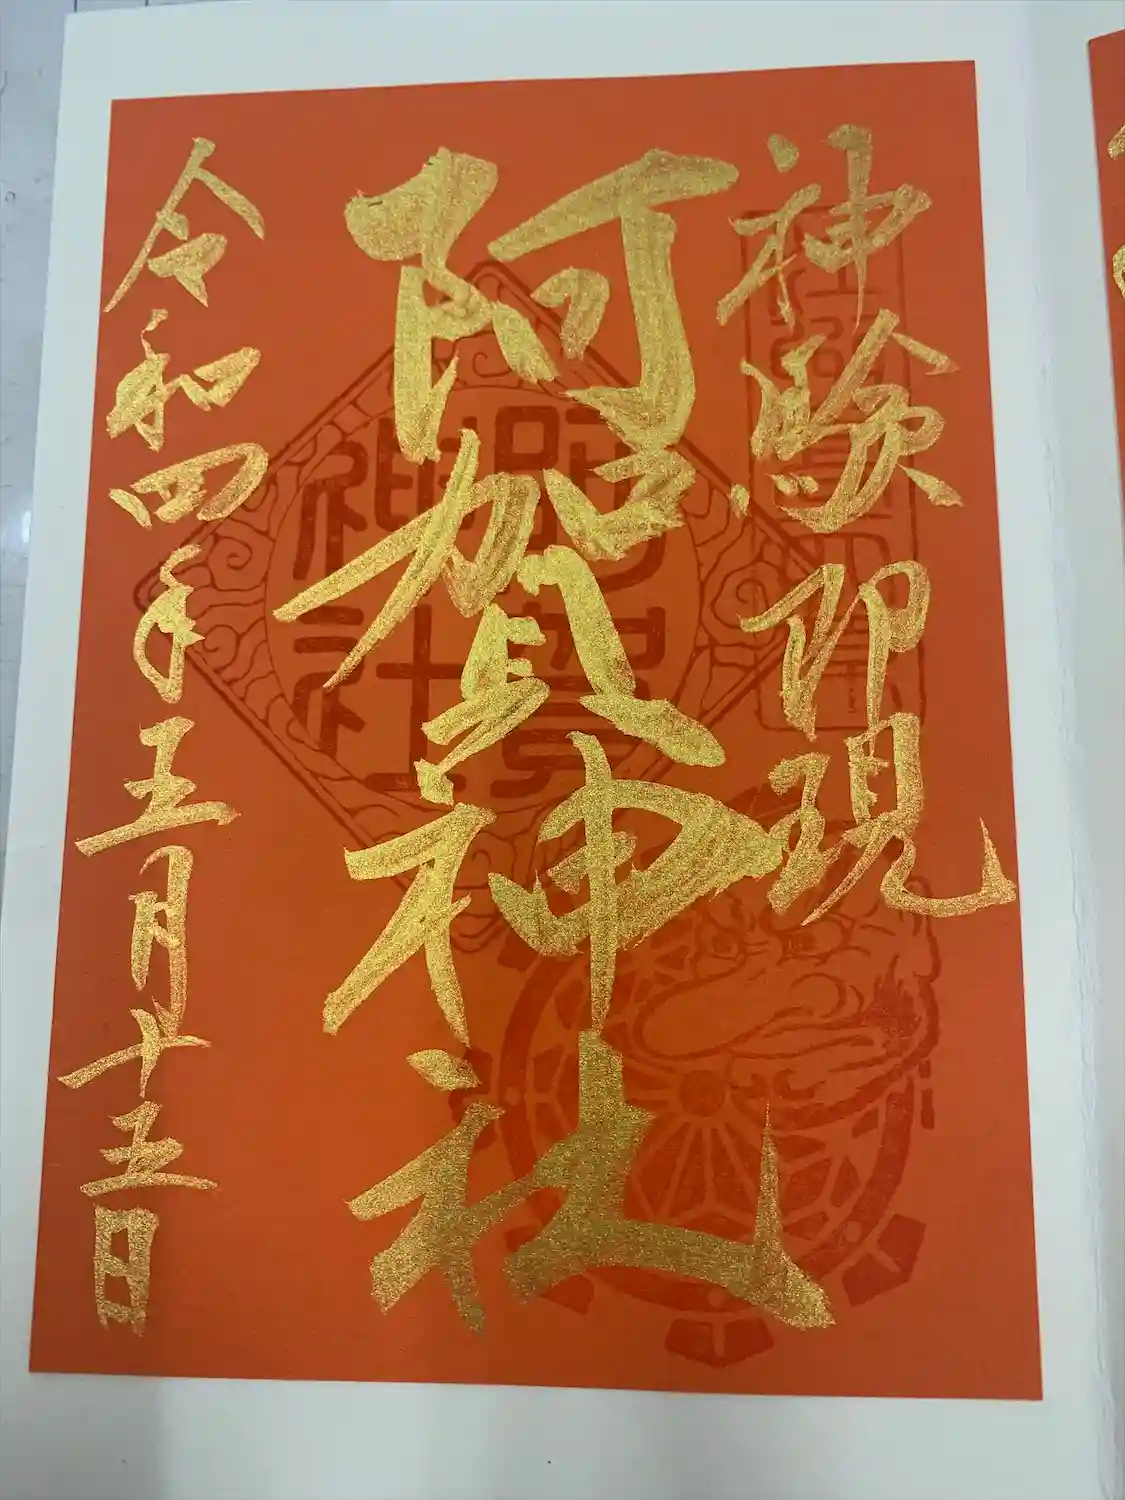 神験即現
阿賀神社
令和四年五月十五日
阿賀
神社